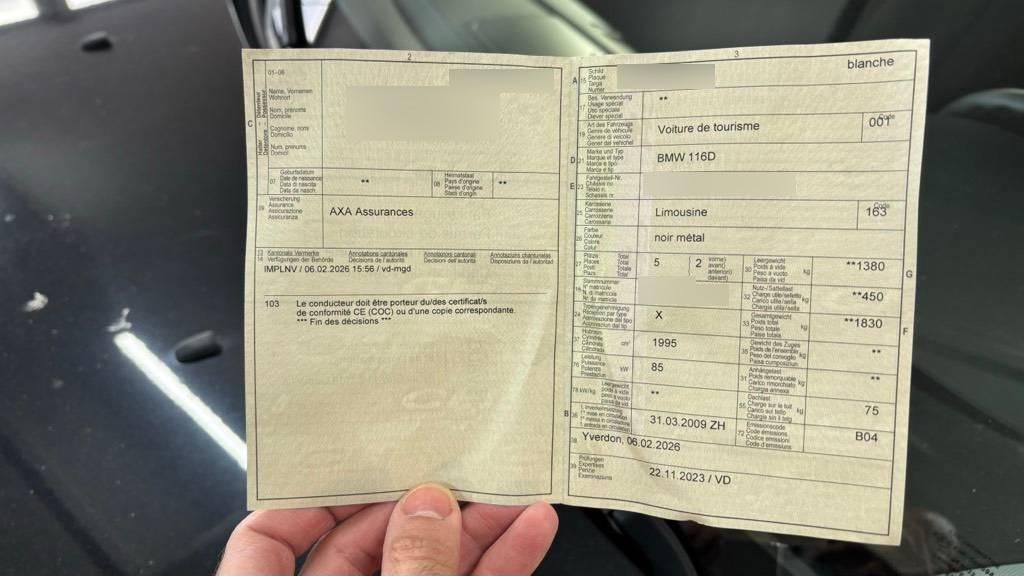 2
01-06
C
Name, Vornamen
Wohnort
Nom, prénoms
Domicile
Cognome, nomi
Domicilio
Num, prenums
Domicil
07
Geburtsdatum
Date de naissance
Data di nascita
Data da nasch.
**
08
Heimatstaat
Pays d'origine
Paese d'origine
Stadi d'origin
**
09
Versicherung
Assurance
Assicurazione
Assicuranza
AXA Assurances
13
14
Kantonale Vermerke
Verfügungen der Behörde
Annotations cantonales
Décisions de l'autorité
Annotazioni cantonali
Decisioni dell'autorità
Annotaziuns chantunalas
Disposiziuns da l'autoritad
IMPLNV / 06.02.2026 15:56 / vd-mgd
103 Le conducteur doit être porteur du/des certificat/s
de conformité CE (COC) ou d'une copie correspondante.
*** Fin des décisions ***
3
A
15
Schild
Plaque
Targa
Numer
blanche
17
Bes. Verwendung
Usage spécial
Uso speciale
Diever spezial
**
19
Art des Fahrzeugs
Genre de véhicule
Genere di veicolo
Gener dal vehichel
Voiture de tourisme
Code
001
D
21
Marke und Typ
Marque et type
Marca e tipo
Marca e tip
BMW 116D
E
23
Fahrgestell-Nr.
Châssis no
Telaio n.
Schassis nr.
25
Karosserie
Carrosserie
Carrozzeria
Carossaria
Limousine
Code
163
26
Farbe
Couleur
Colore
Colur
noir métal
27
Plätze
Places
Posti
Plazs
Total
Total
Totale
Total
5
2
vorne)
avant)
anteriori)
davant)
30
Leergewicht
Poids à vide
Peso a vuoto
Paisa da vid
kg
**1380
G
Stammnummer
N° matricule
N. di matricola
Nr. da matricla
32
Nutz-/Sattellast
Charge utile/sellette
Carico utile/sella
Chargia utila/sella
kg
**450
24
Typengenehmigung
Réception par type
Approvazione del tipo
Approvaziun dal tip
X
33
Gesamtgewicht
Poids total
Peso totale
Paisa totala
kg
**1830
F
37
Hubraum
Cylindrée
Cilindrata
Cilindrada
cm³
1995
35
Gewicht des Zuges
Poids de l'ensemble
Peso del convoglio
Paisa cumposiziun
kg
**
76
Leistung
Puissance
Potenza
Prestaziun
kW
85
31
Anhängelast
Poids remorquable
Carico rimorchiato
Chargia annexa
kg
**
78 kW/kg
Leergewicht
poids à vide
peso a vuoto
paisa da vid
**
55
Dachlast
Charge sur le toit
Carico sul tetto
Chargia sin il tetg
kg
75
B
36
1. Inverkehrsetzung
1re mise en circulation
1a messa in circolazione
1. entrada en circulaziun
31.03.2009 ZH
72
Emissionscode
Code émissions
Codice emissioni
Code d'emissiuns
B04
38
Yverdon, 06.02.2026
39
Prüfungen
Expertises
Perizie
Examinaziuns
22.11.2023 / VD